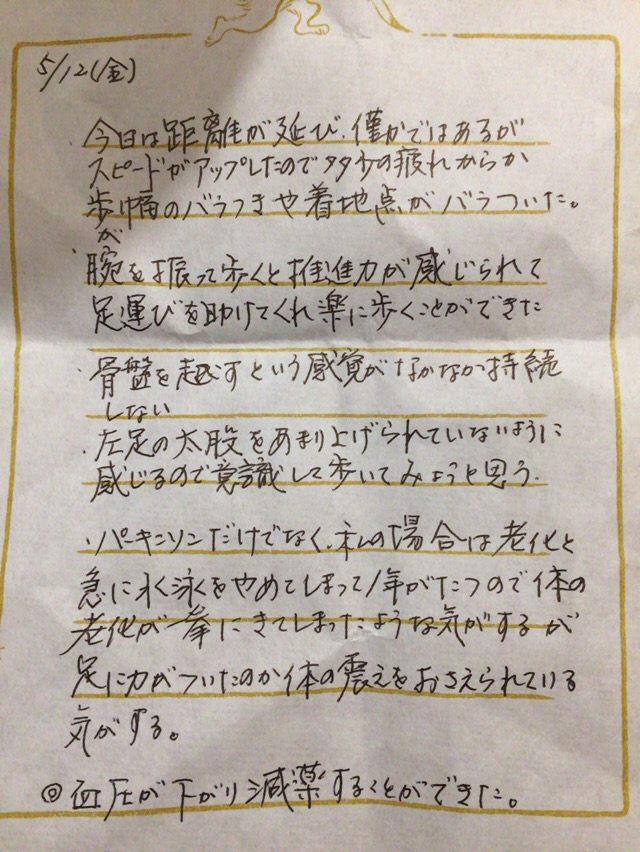 5/12(金)
・今日は距離が延び、僅かではあるが
スピードがアップしたので多少の疲れからか
歩幅のバラつきや着地点がバラついた。
が
・腕を振って歩くと推進力が感じられて
足運びを助けてくれ楽に歩くことができた
・骨盤を起すという感覚がなかなか持続
しない
・左足の太股をあまり上げられていないように
感じるので意識して歩いてみようと思う.
・パーキンソンだけでなく、私の場合は老化と
急に水泳をやめてしまって1年がたつので体の
老化が一挙にきてしまったような気がするが
足に力がついたのか体の震えをおさえられている
気がする。
◎血圧が下がり減薬することができた。